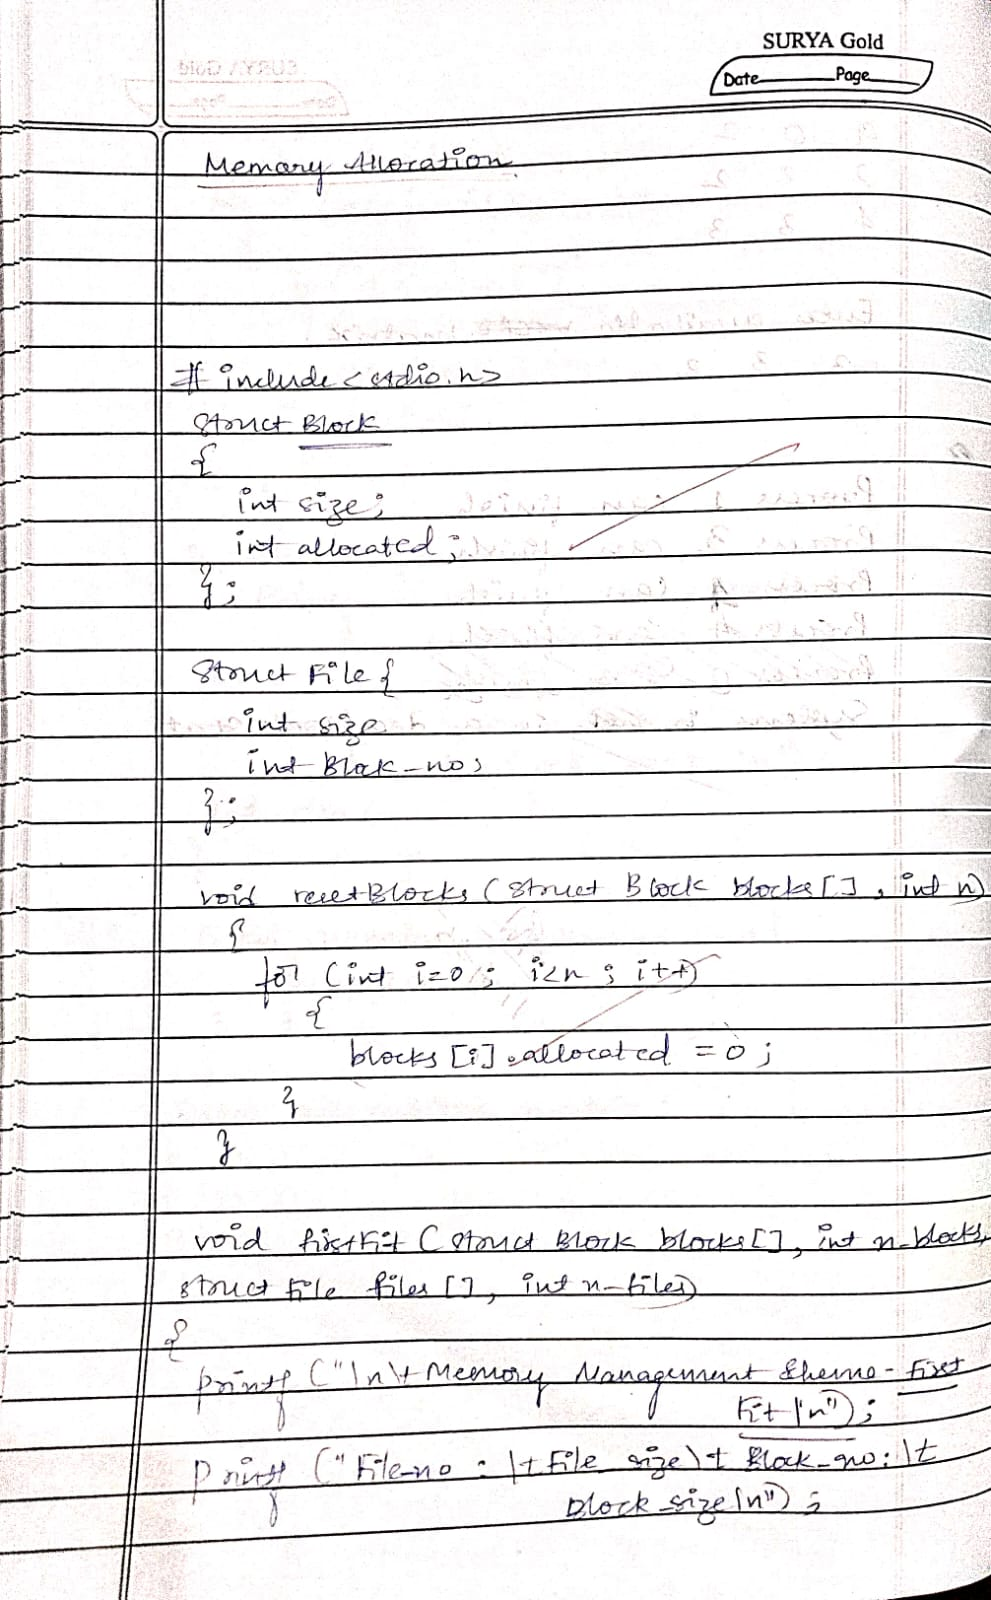 SURYA Gold
Date Page
Memory Allocation
# include <stdio.h>
struct Block
{
int size;
int allocated;
};
struct File {
int size
int Block_no;
};
void resetBlocks (struct Block blocks[], int n)
{
for (int i=0; i<n; i++)
{
blocks[i].allocated = 0;
}
}
void firstFit (struct Block blocks[], int n_blocks,
struct File files [], int n-files)
{
printf ("\n\t Memory Management Sheme - First
Fit \n");
printf ("File_no : \t File size \t Block_no: \t
block_size \n");